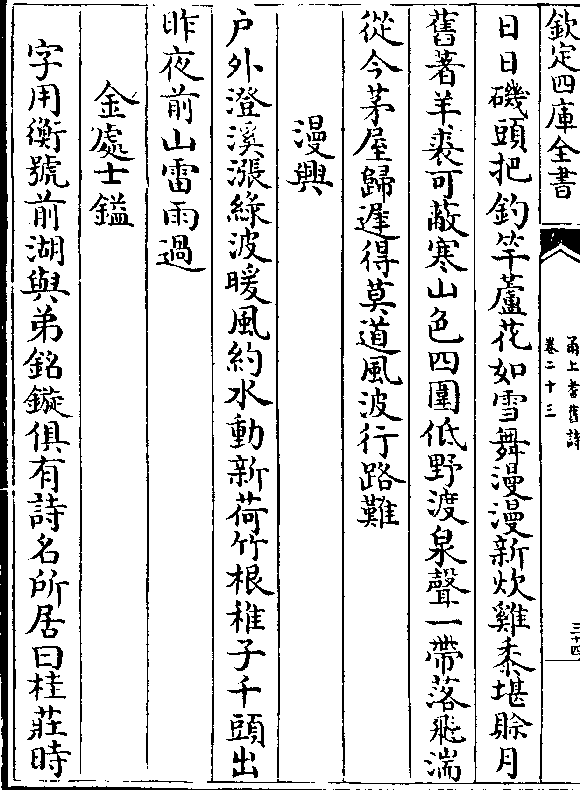 欽定四庫全書
甬上耆舊詩
卷二十三
三十四
日日磯頭把釣竿蘆花如雪舞漫漫新炊雞黍堪賒月
舊著羊裘可蔽寒山色四圍低野渡泉聲一帶落飛湍
從今茅屋歸遲得莫道風波行路難
漫興
户外澄溪漲緑波暖風約水動新荷竹根稚子千頭出
昨夜前山雷雨過
金處士鎰
字用衡號前湖與弟銘鏇俱有詩名所居曰桂莊時